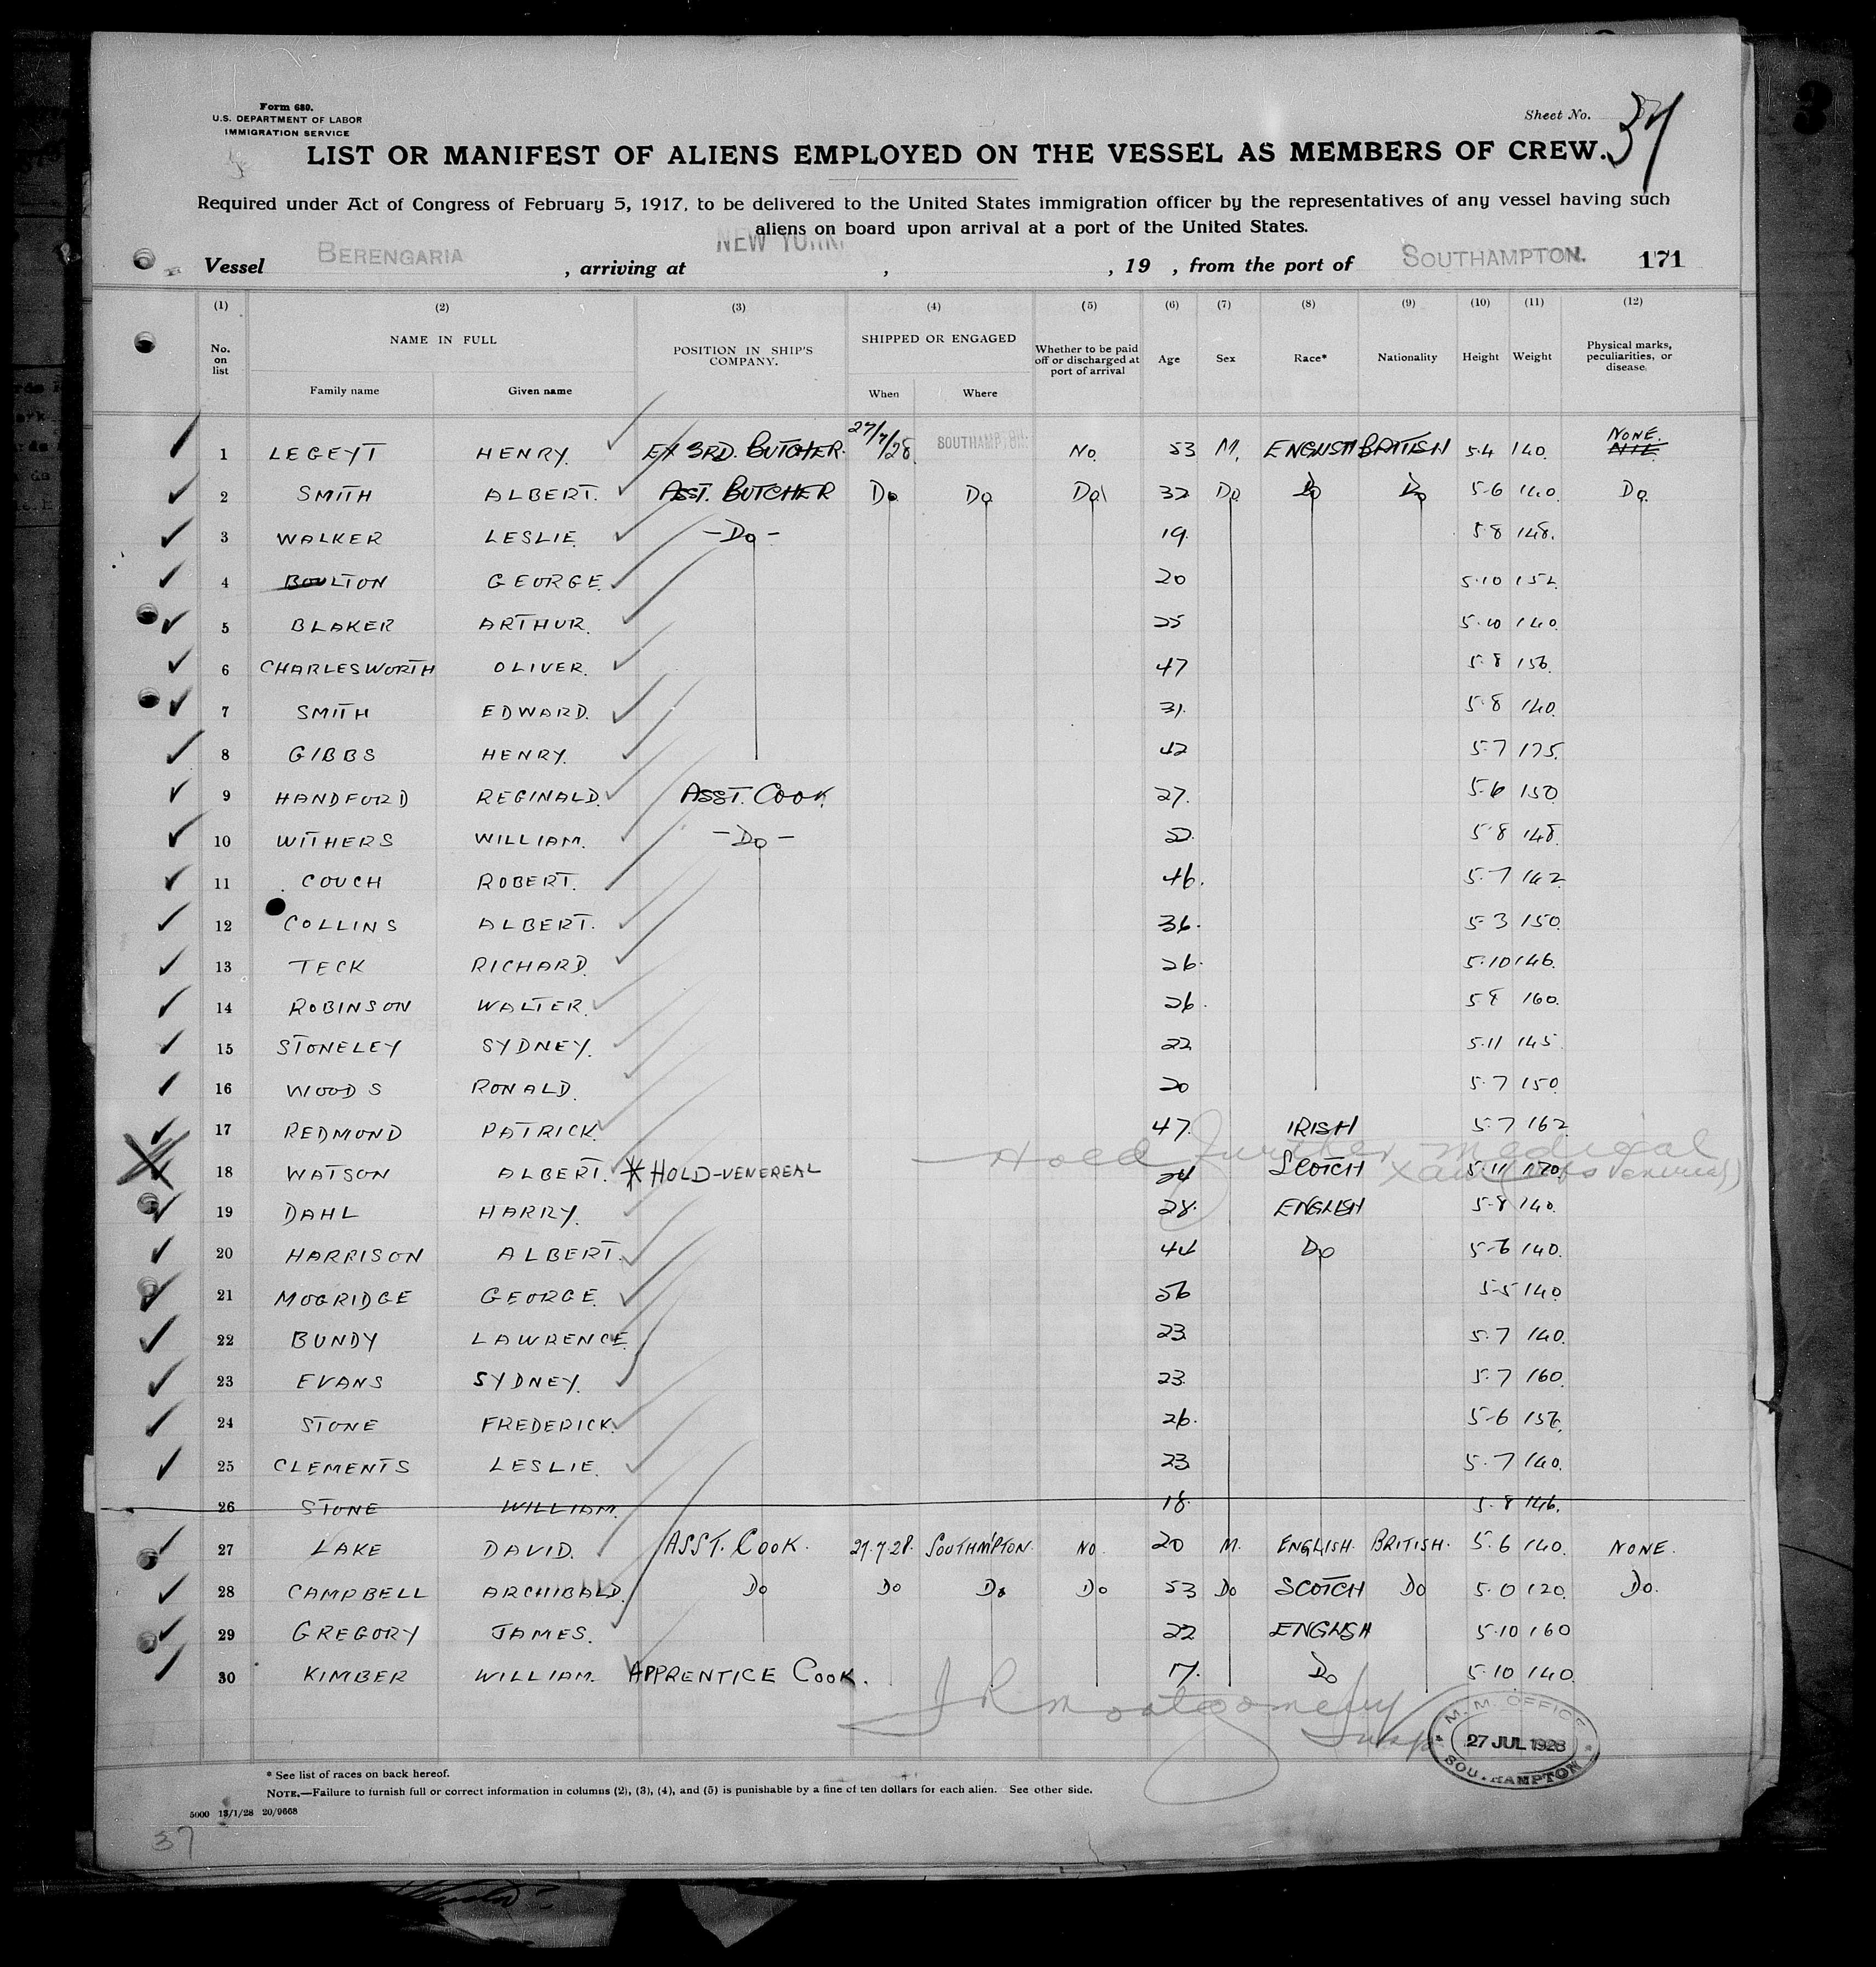 Form 680.
U.S. DEPARTMENT OF LABOR
IMMIGRATION SERVICE
Sheet No. 37
LIST OR MANIFEST OF ALIENS EMPLOYED ON THE VESSEL AS MEMBERS OF CREW.
Required under Act of Congress of February 5, 1917, to be delivered to the United States immigration officer by the representatives of any vessel having such
aliens on board upon arrival at a port of the United States.
Vessel BERENGARIA, arriving at NEW YORK, , 19 , from the port of SOUTHAMPTON. 171
(1) (2) (3) (4) (5) (6) (7) (8) (9) (10) (11) (12)
No. on list NAME IN FULL POSITION IN SHIP'S COMPANY. SHIPPED OR ENGAGED Whether to be paid off or discharged at port of arrival Age Sex Race* Nationality Height Weight Physical marks, peculiarities, or disease.
Family name Given name When Where
1 LEGEYT HENRY. EX 3RD. BUTCHER. 27/7/28. SOUTHAMPTON. No. 53 M. ENGLISH BRITISH 5.4 140. NONE. NIL.
2 SMITH ALBERT. ASST. BUTCHER Do Do Do 32 Do Do Do 5.6 140. Do.
3 WALKER LESLIE. -Do- 19. 5.8 148.
4 BOULTON GEORGE. 20 5.10 152
5 BLAKER ARTHUR. 25 5.10 140.
6 CHARLESWORTH OLIVER. 47 5.8 156.
7 SMITH EDWARD. 31. 5.8 140.
8 GIBBS HENRY. 42 5.7 175.
9 HANDFORD REGINALD. ASST. COOK. 27. 5.6 150
10 WITHERS WILLIAM. -Do- 5.8 148.
11 COUCH ROBERT. 46. 5.7 142
12 COLLINS ALBERT. 36. 5.3 150.
13 TECK RICHARD. 26. 5.10 146.
14 ROBINSON WALTER. 26. 5.8 160.
15 STONELEY SYDNEY. 22 5.11 145.
16 WOODS RONALD. 20 5.7 150
17 REDMOND PATRICK. 47. IRISH 5.7 162
Hold further medical
18 WATSON ALBERT. * HOLD-VENEREAL 24 SCOTCH 5.11 170.
19 DAHL HARRY. 28. ENGLISH 5.8 140.
20 HARRISON ALBERT. 44 Do 5.6 140.
21 MOGRIDGE GEORGE. 56 5.5 140
22 BUNDY LAWRENCE. 23 5.7 140.
23 EVANS SYDNEY. 23. 5.7 160.
24 STONE FREDERICK. 26. 5.6 156.
25 CLEMENTS LESLIE. 23 5.7 140.
26 STONE WILLIAM. 18. 5.8 146.
27 LAKE DAVID. ASST. COOK. 27.7.28. SOUTHM'PTON. NO. 20 M. ENGLISH. BRITISH. 5.6 140. NONE.
28 CAMPBELL ARCHIBALD. Do Do Do Do 53 Do SCOTCH Do 5.0 120. Do.
29 GREGORY JAMES. 22 ENGLISH 5.10 160
30 KIMBER WILLIAM. APPRENTICE COOK. 17. Do 5.10 140.
J R Montgomery
Insp
M. M. OFFICE
27 JUL 1928
SOUTHAMPTON
* See list of races on back hereof.
NOTE.—Failure to furnish full or correct information in columns (2), (3), (4), and (5) is punishable by a fine of ten dollars for each alien. See other side.
5000 13/1/28 20/9668
37